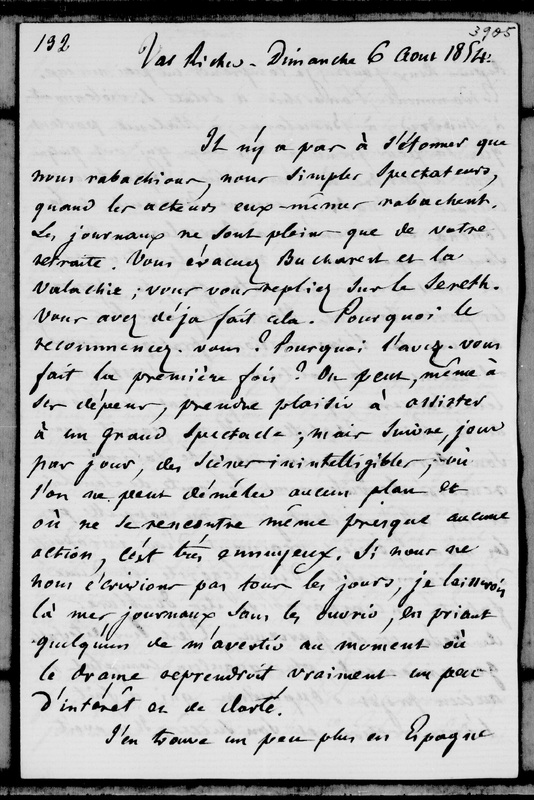 132
3905
Val Richer - Dimanche 6 Aout 1854.
Il n'y a pas à s'étonner que
nous rabachions, nous simples spectateurs,
quand les acteurs eux-mêmes rabachent.
Les journaux ne sont pleins que de votre
retraite. Vous évacuez Bucharest et la
Valachie ; vous vous repliez sur le Sereth.
Vous avez déja fait cela. Pourquoi le
recommencez-vous ? Pourquoi l'avez-vous
fait la première fois ? On peut, même à
ses dépens, prendre plaisir à assister
à un grand spectacle ; mais suivre, jour
par jour, des scènes inintelligibles, où
l'on ne peut démêler aucun plan et
où ne se rencontre même presque aucune
action, c'est très ennuyeux. Si nous ne
nous écrivions pas tous les jours, je laisserois
là mes journaux sans les ouvrir, en priant
quelqu'un de m'avertir au moment où
le drame reprendroit vraiment un peu
d'intérêt et de clarté.
J'en trouve un peu plus en Espagne